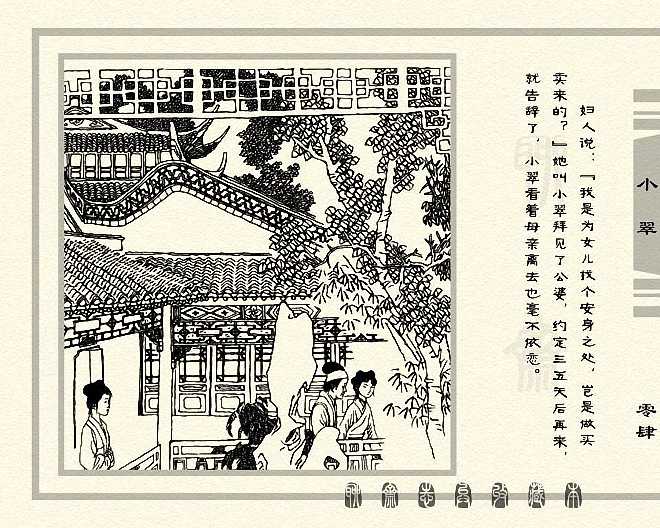 妇人说：『我是为女儿找个安身之处，岂是做买
卖来的？』她叫小翠拜见了公婆，约定三五天后再来，
就告辞了，小翠看着母亲离去也毫不依恋。
小翠
零肆